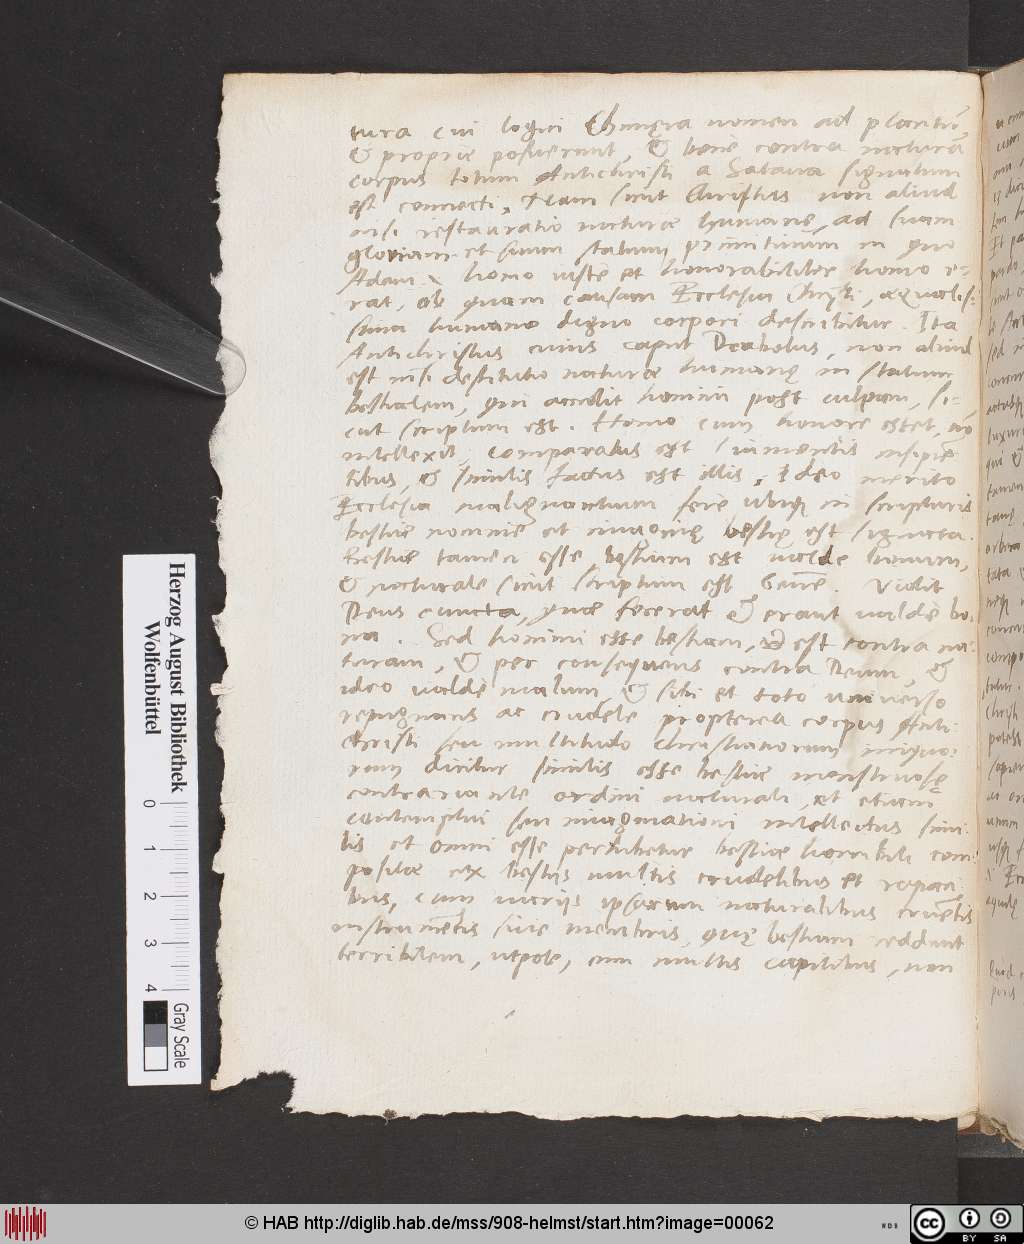 tura cui logici Chimęra nomen ad placitũ,
& proprie posuerunt, & bene contra naturã
corpus totum Antichristi a Satana signatum
est connecti. Nam sicut Christus non aliud
nisi restauratio naturæ humanę, ad suam
gloriam et suum statum primitiuum in quo
Adam homo iuste et honorabiliter homo e-
rat, ob quam causam Ecclesia Christi, æqualis-
sima humano digno corpori describitur. Ita
Antichristus cuius caput Diabolus, non aliud
est nisi destitutio naturæ humanę in statum
bestialem, qui accidit homini post culpam, si-
cut scriptum est. Homo cum honore esset, nõ
intellexit, comparatus est iumentis insipiẽ
tibus, & similis factus est illis. Ideo merito
Ecclesia malignantium fere ubiq; in scripturis
bestiæ nomine et imagine bestię est signata.
Bestiæ tamen esse bestiam est ualde bonum,
& naturale sicut scriptum est Gene. Vidit
Deus cuncta, quæ fecerat & erant ualde bo-
na. Sed homini esse bestiam, est contra na-
turam, & per consequens contra Deum, &
ideo ualde malum & sibi et toto uniuerso
repugnans ac crudele propterea corpus Anti-
christi seu multitudo christianorum iniquo-
rum dicitur similis esse bestiæ monstruosę
contrariante ordini naturali, et etiam
contemptui seu imaginationi intellectus simi-
lis et omni esse perhibetur bestiæ horribili com-
positæ ex bestijs multis crudelibus et rapaci
bus, cum uarijs ipsarum naturalibus cruẽtis
instrumẽtis siue membris, quę bestiam reddunt
terribilem, utpote, cum multis capitibus, non
Herzog August Bibliothek
Wolfenbüttel
0 1 2 3 4
Gray Scale
© HAB http://diglib.hab.de/mss/908-helmst/start.htm?image=00062
WDB
cc BY SA